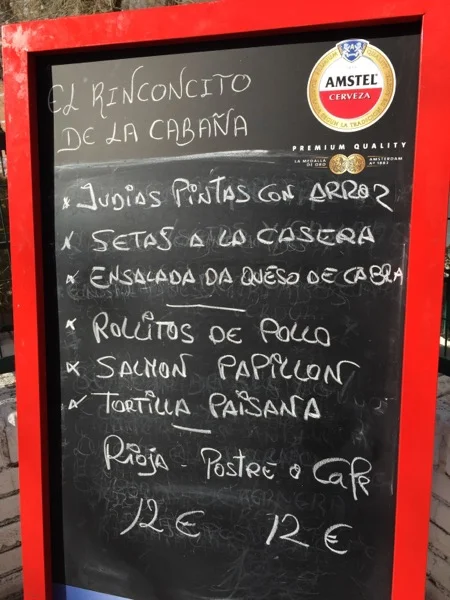 EL RINCONCITO
DE LA CABAÑA
AMSTEL
CERVEZA
PREMIUM QUALITY
LA MEDALLA
DE ORO
AMSTERDAM
Aº 1883
x JUDIAS PINTAS CON ARROZ
x SETAS A LA CASERA
x ENSALADA DA QUESO DE CABRA
x ROLLITOS DE POLLO
x SALMON PAPILLON
x TORTILLA PAISANA
RIOJA - POSTRE o CAFE
12 € 12 €